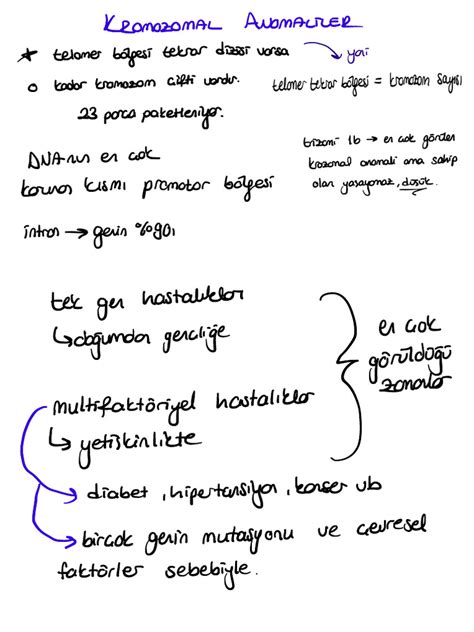 KROMOZOMAL ANOMALİLER
* telomer bölgesi tekrar dizisi varsa → yani
o kadar kromozom çifti vardır.
telomer tekrar bölgesi = kromozom sayısı
23 parça paketleniyor.
trizomi 16 → en çok görülen
krozomal anomali ama sahip
olan yaşayamaz, düşük.
DNA'nın en çok
korunan kısmı promotor bölgesi
intron → genin %90ı
tek gen hastalıkları
↳ doğumdan gençliğe
en çok
görüldüğü
zamanlar
multifaktöriyel hastalıklar
↳ yetişkinlikte
→ diabet, hipertansiyon, kanser vb
→ birçok genin mutasyonu ve çevresel
faktörler sebebiyle.